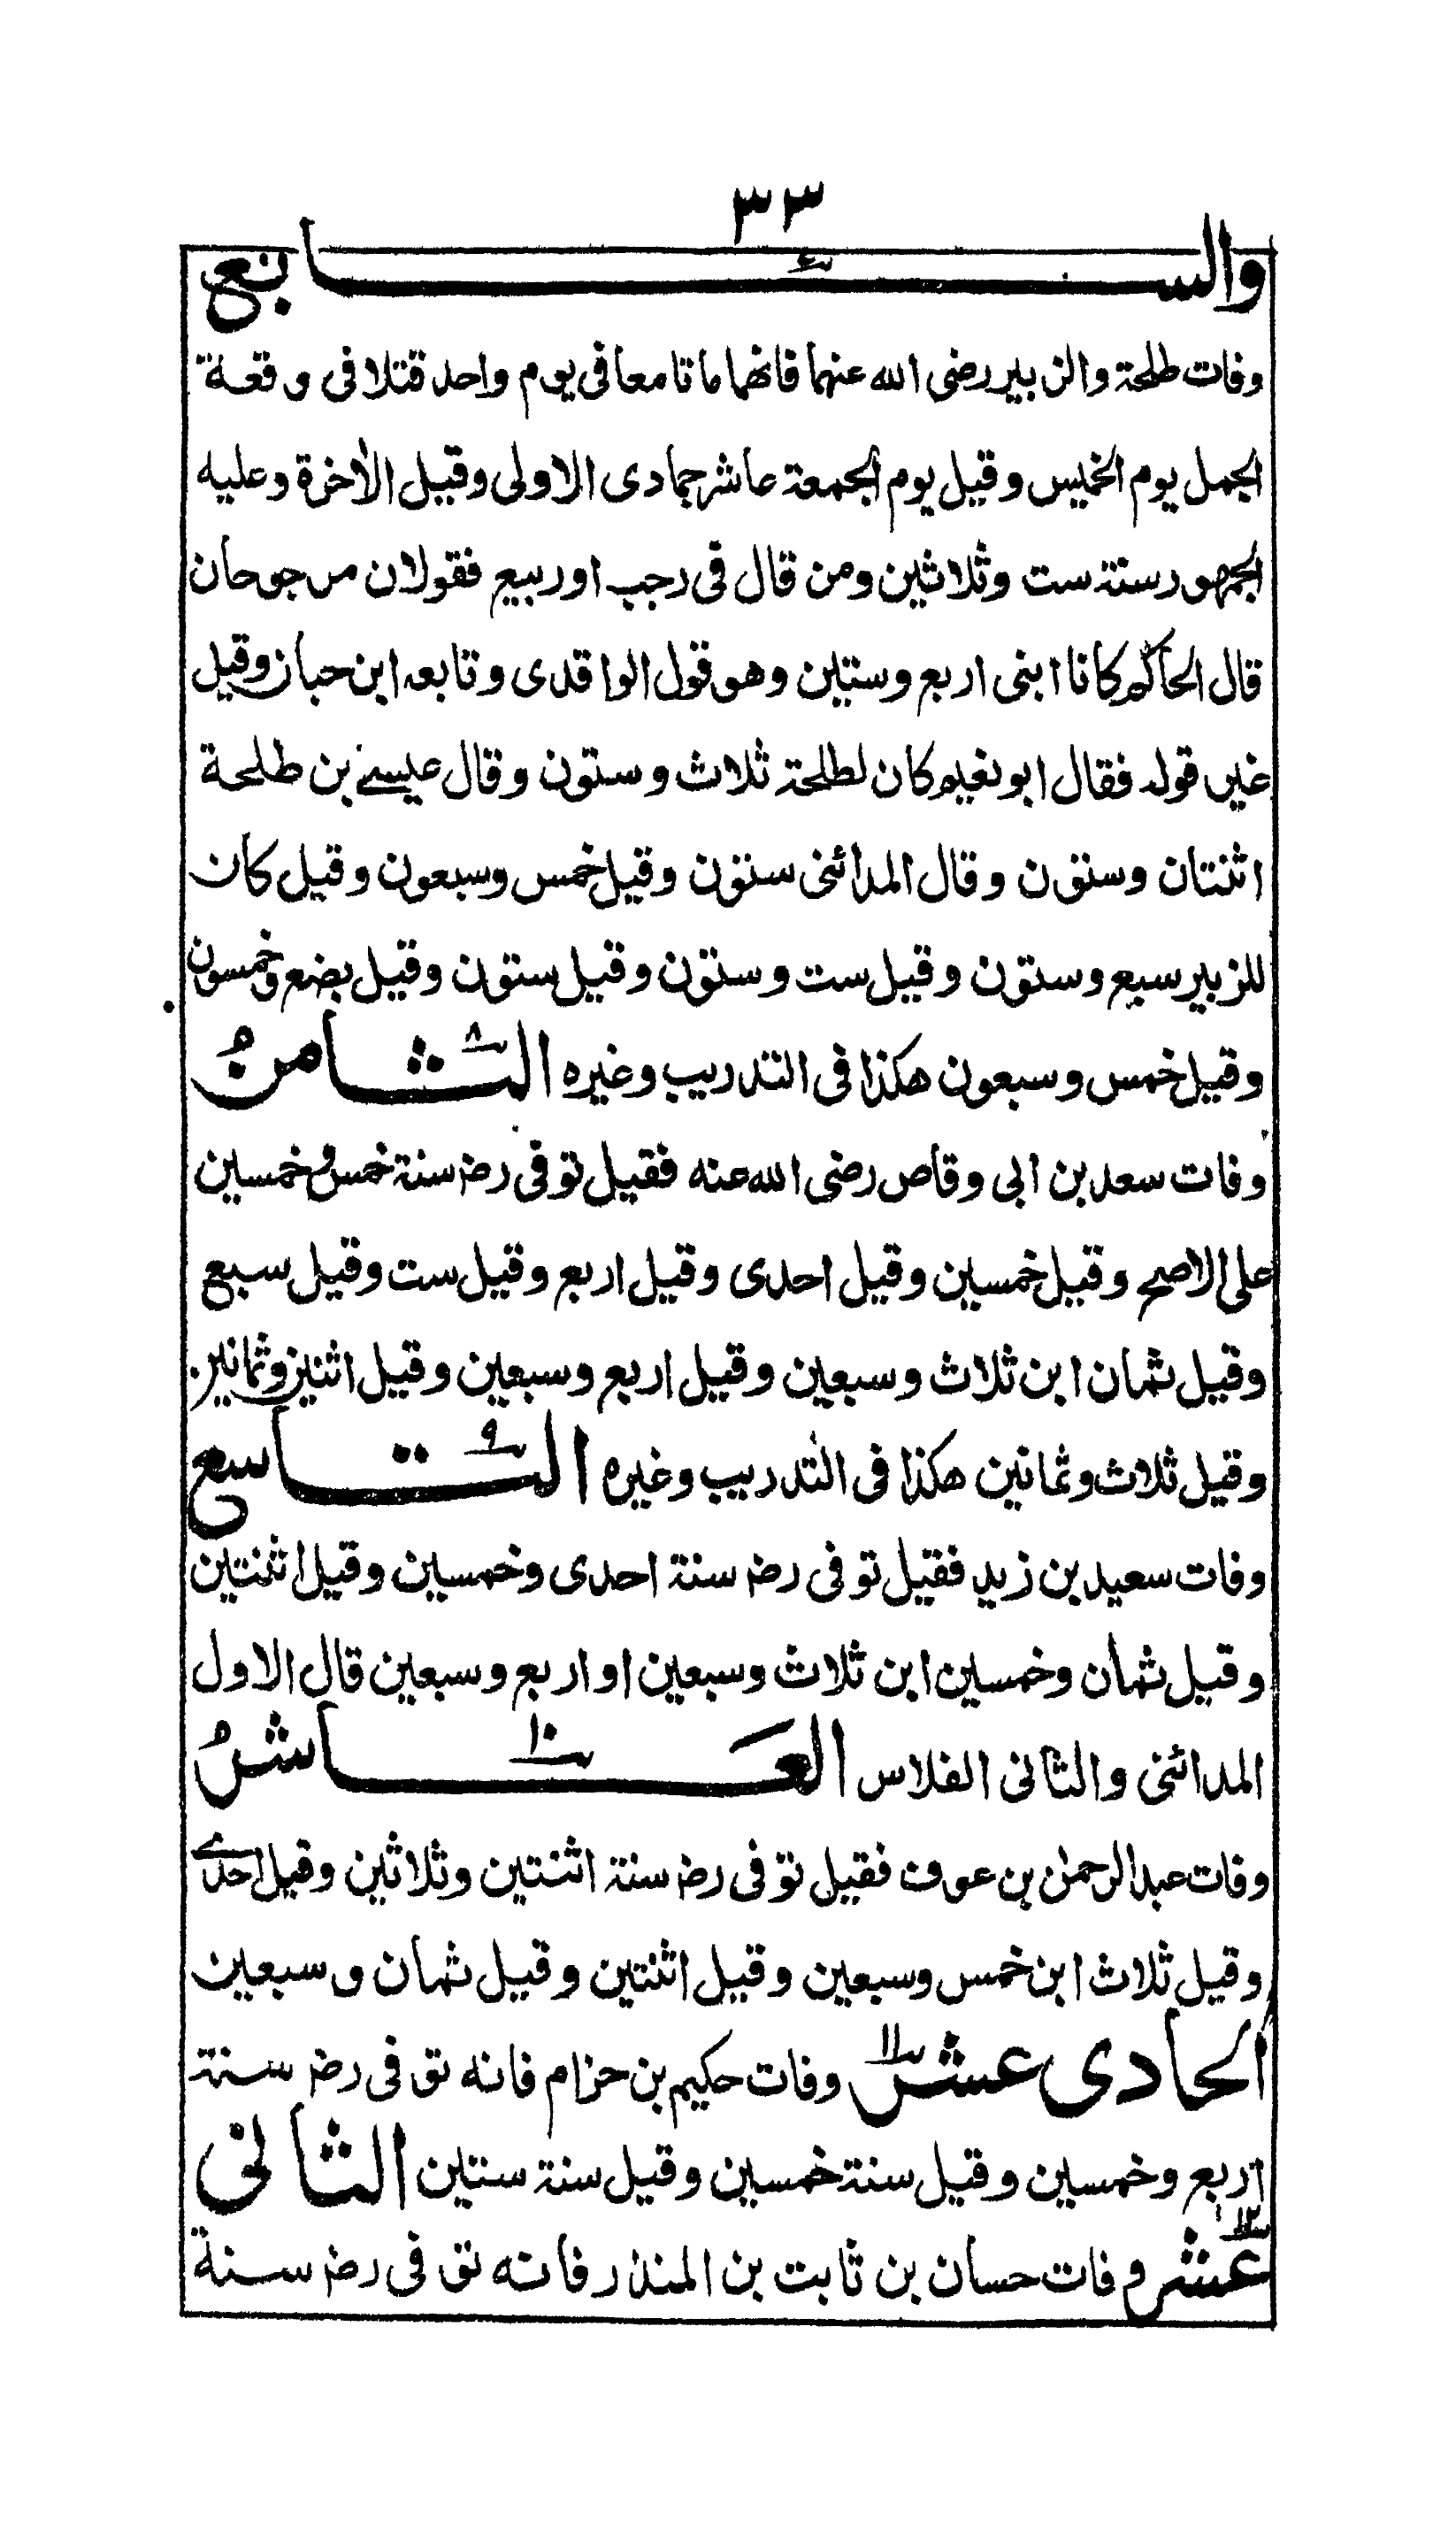 ٣٣
والسابع
وفات طلحة والزبير رضى الله عنهما فانهما ماتا معا فى يوم واحد قتلا فى وقعة
الجمل يوم الخميس وقيل يوم الجمعة عاشر جمادى الاولى وقيل الاخرة وعليه
الجمهور سنة ست وثلاثين ومن قال فى رجب او ربيع فقولان مرجوحان
قال الحاكم كانا ابنى اربع وستين وهو قول الواقدى وتابعه ابن حبان وقيل
غير قوله فقال ابو نعيم كان لطلحة ثلاث وستون وقال عيسے بن طلحة
اثنتان وستون وقال المدائنى ستون وقيل خمس وسبعون وقيل كان
للزبير سبع وستون وقيل ست وستون وقيل ستون وقيل بضع وخمسون
وقيل خمس وسبعون هكذا فى التدريب وغيره الثامنُ ٨
وفات سعد بن ابى وقاص رضى الله عنه فقيل توفى رضہ سنة خمس وخمسين
على الاصح وقيل خمسين وقيل احدى وقيل اربع وقيل ست وقيل سبع
وقيل ثمان ابن ثلاث وسبعين وقيل اربع وسبعين وقيل اثنين وثمانين
وقيل ثلاث وثمانين هكذا فى التدريب وغيره التاسع ٩
وفات سعيد بن زيد فقيل توفى رضہ سنة احدى وخمسين وقيل اثنتين
وقيل ثمان وخمسين ابن ثلاث وسبعين او اربع وسبعين قال الاول
المدائنى والثانى الفلاس العَاشرُ ١٠
وفات عبد الرحمٰن بن عوف فقيل توفى رضہ سنة اثنتين وثلاثين وقيل احدے
وقيل ثلاث ابن خمس وسبعين وقيل اثنتين وقيل ثمان وسبعين
الحادى عشر ١١ وفات حكيم بن حزام فانه توفى رضہ سنة
اربع وخمسين وقيل سنة خمسين وقيل سنة ستين الثانى
عشر ١٢ وفات حسان بن ثابت بن المنذر فانه توفى رضہ سنة